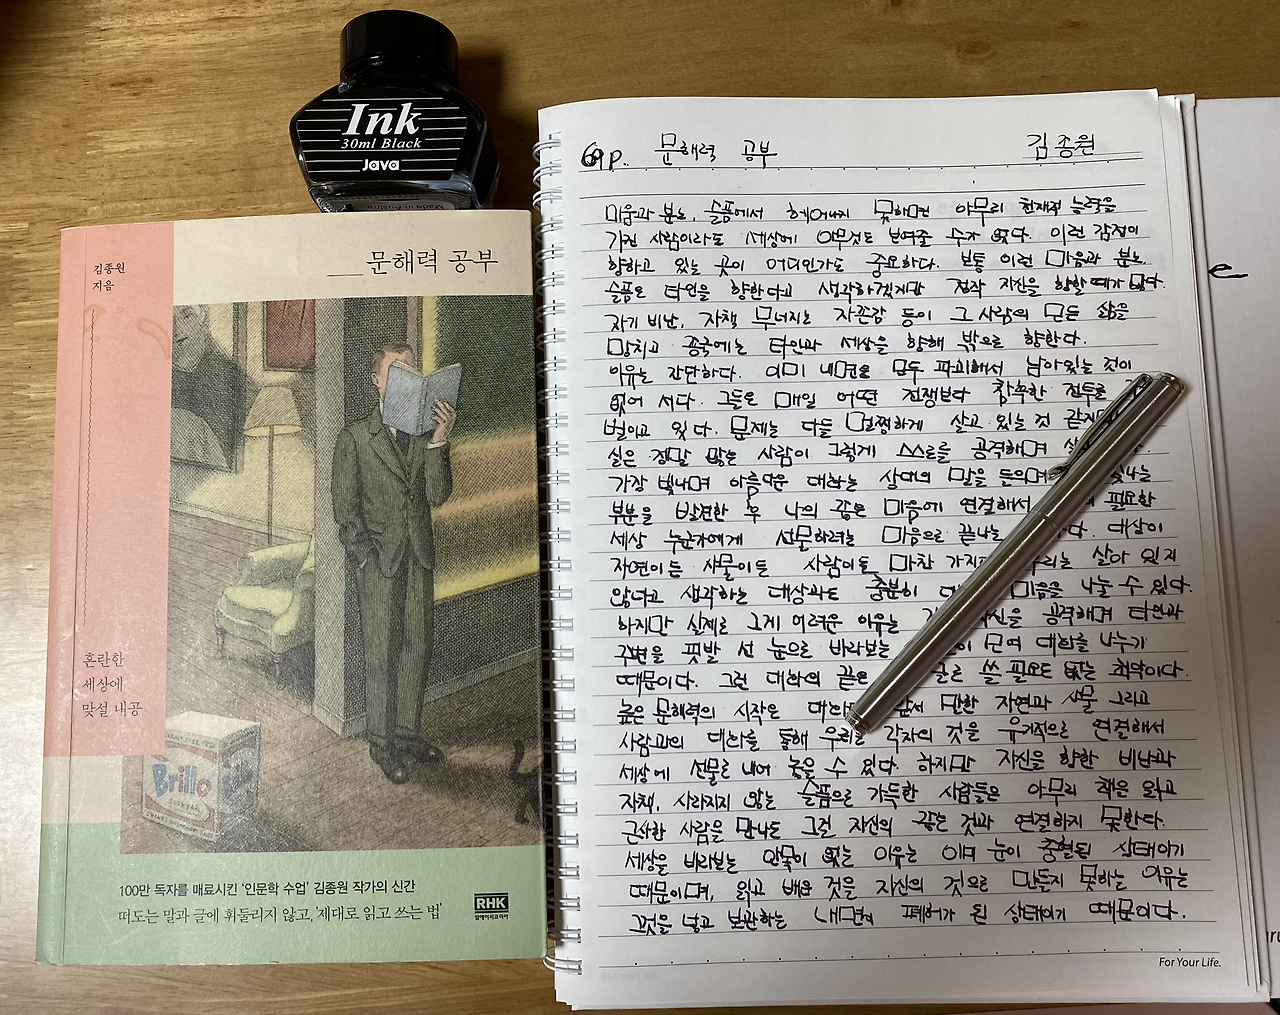 Ink
30ml Black
Java
Made in Austria
김종원
지음
문해력 공부
혼란한
세상에
맞설 내공
Brillo
100만 독자를 매료시킨 '인문학 수업' 김종원 작가의 신간
떠도는 말과 글에 휘둘리지 않고, '제대로 읽고 쓰는 법'
RHK
알에이치코리아
69p. 문해력 공부 김종원
미움과 분노, 슬픔에서 헤어나지 못하면 아무리 천재적 능력을
가진 사람이라도 세상에 아무것도 보여줄 수가 없다. 이런 감정이
향하고 있는 곳이 어디인가도 중요하다. 보통 이런 미움과 분노,
슬픔은 타인을 향한다고 생각하겠지만 정작 자신을 향할 때가 많다.
자기 비난, 자책 무너지는 자존감 등이 그 사람의 모든 삶을
망치고 종국에는 타인과 세상을 향해 밖으로 향한다.
이유는 간단하다. 이미 내면은 모두 파괴해서 남아있는 것이
없어 서다. 그들은 매일 어떤 전쟁보다 참혹한 전투를
벌이고 있다. 문제는 다들 멀쩡하게 살고 있는 것 같지만
실은 정말 많은 사람이 그렇게 스스로를 공격하며
가장 빛나며 아름다운 대화는 상대의 말을 들으며 빛나는
부분을 발견한 후 나의 같은 마음에 연결해서 필요한
세상 누군가에게 선물하려는 마음으로 끝나는 대상이
자연이든 사물이든 사람이든 마찬 가지 우리는 살아 있지
않다고 생각하는 대상과도 충분히 마음을 나눌 수 있다.
하지만 실제로 그게 어려운 이유는 자신을 공격하며 타인과
주변을 핏발 선 눈으로 바라보는 모여 대화를 나누기
때문이다. 그런 대화의 끝은 글로 쓸 필요도 없는 최악이다.
높은 문해력의 시작은 대화 만한 자연과 사물 그리고
사람과의 대화를 통해 우리를 각자의 것을 유기적으로 연결해서
세상에 선물로 내어 놓을 수 있다. 하지만 자신을 향한 비난과
자책, 사라지지 않는 슬픔으로 가득한 사람들은 아무리 책을 읽고
근사한 사람을 만나도 그걸 자신의 같은 것과 연결하지 못한다.
세상을 바라보는 안목이 없는 이유는 이미 눈이 충혈된 상태이기
때문이며, 읽고 배운 것을 자신의 것으로 만들지 못하는 이유는
그것을 넣고 보관하는 내면이 폐허가 된 상태이기 때문이다.
For Your Life.